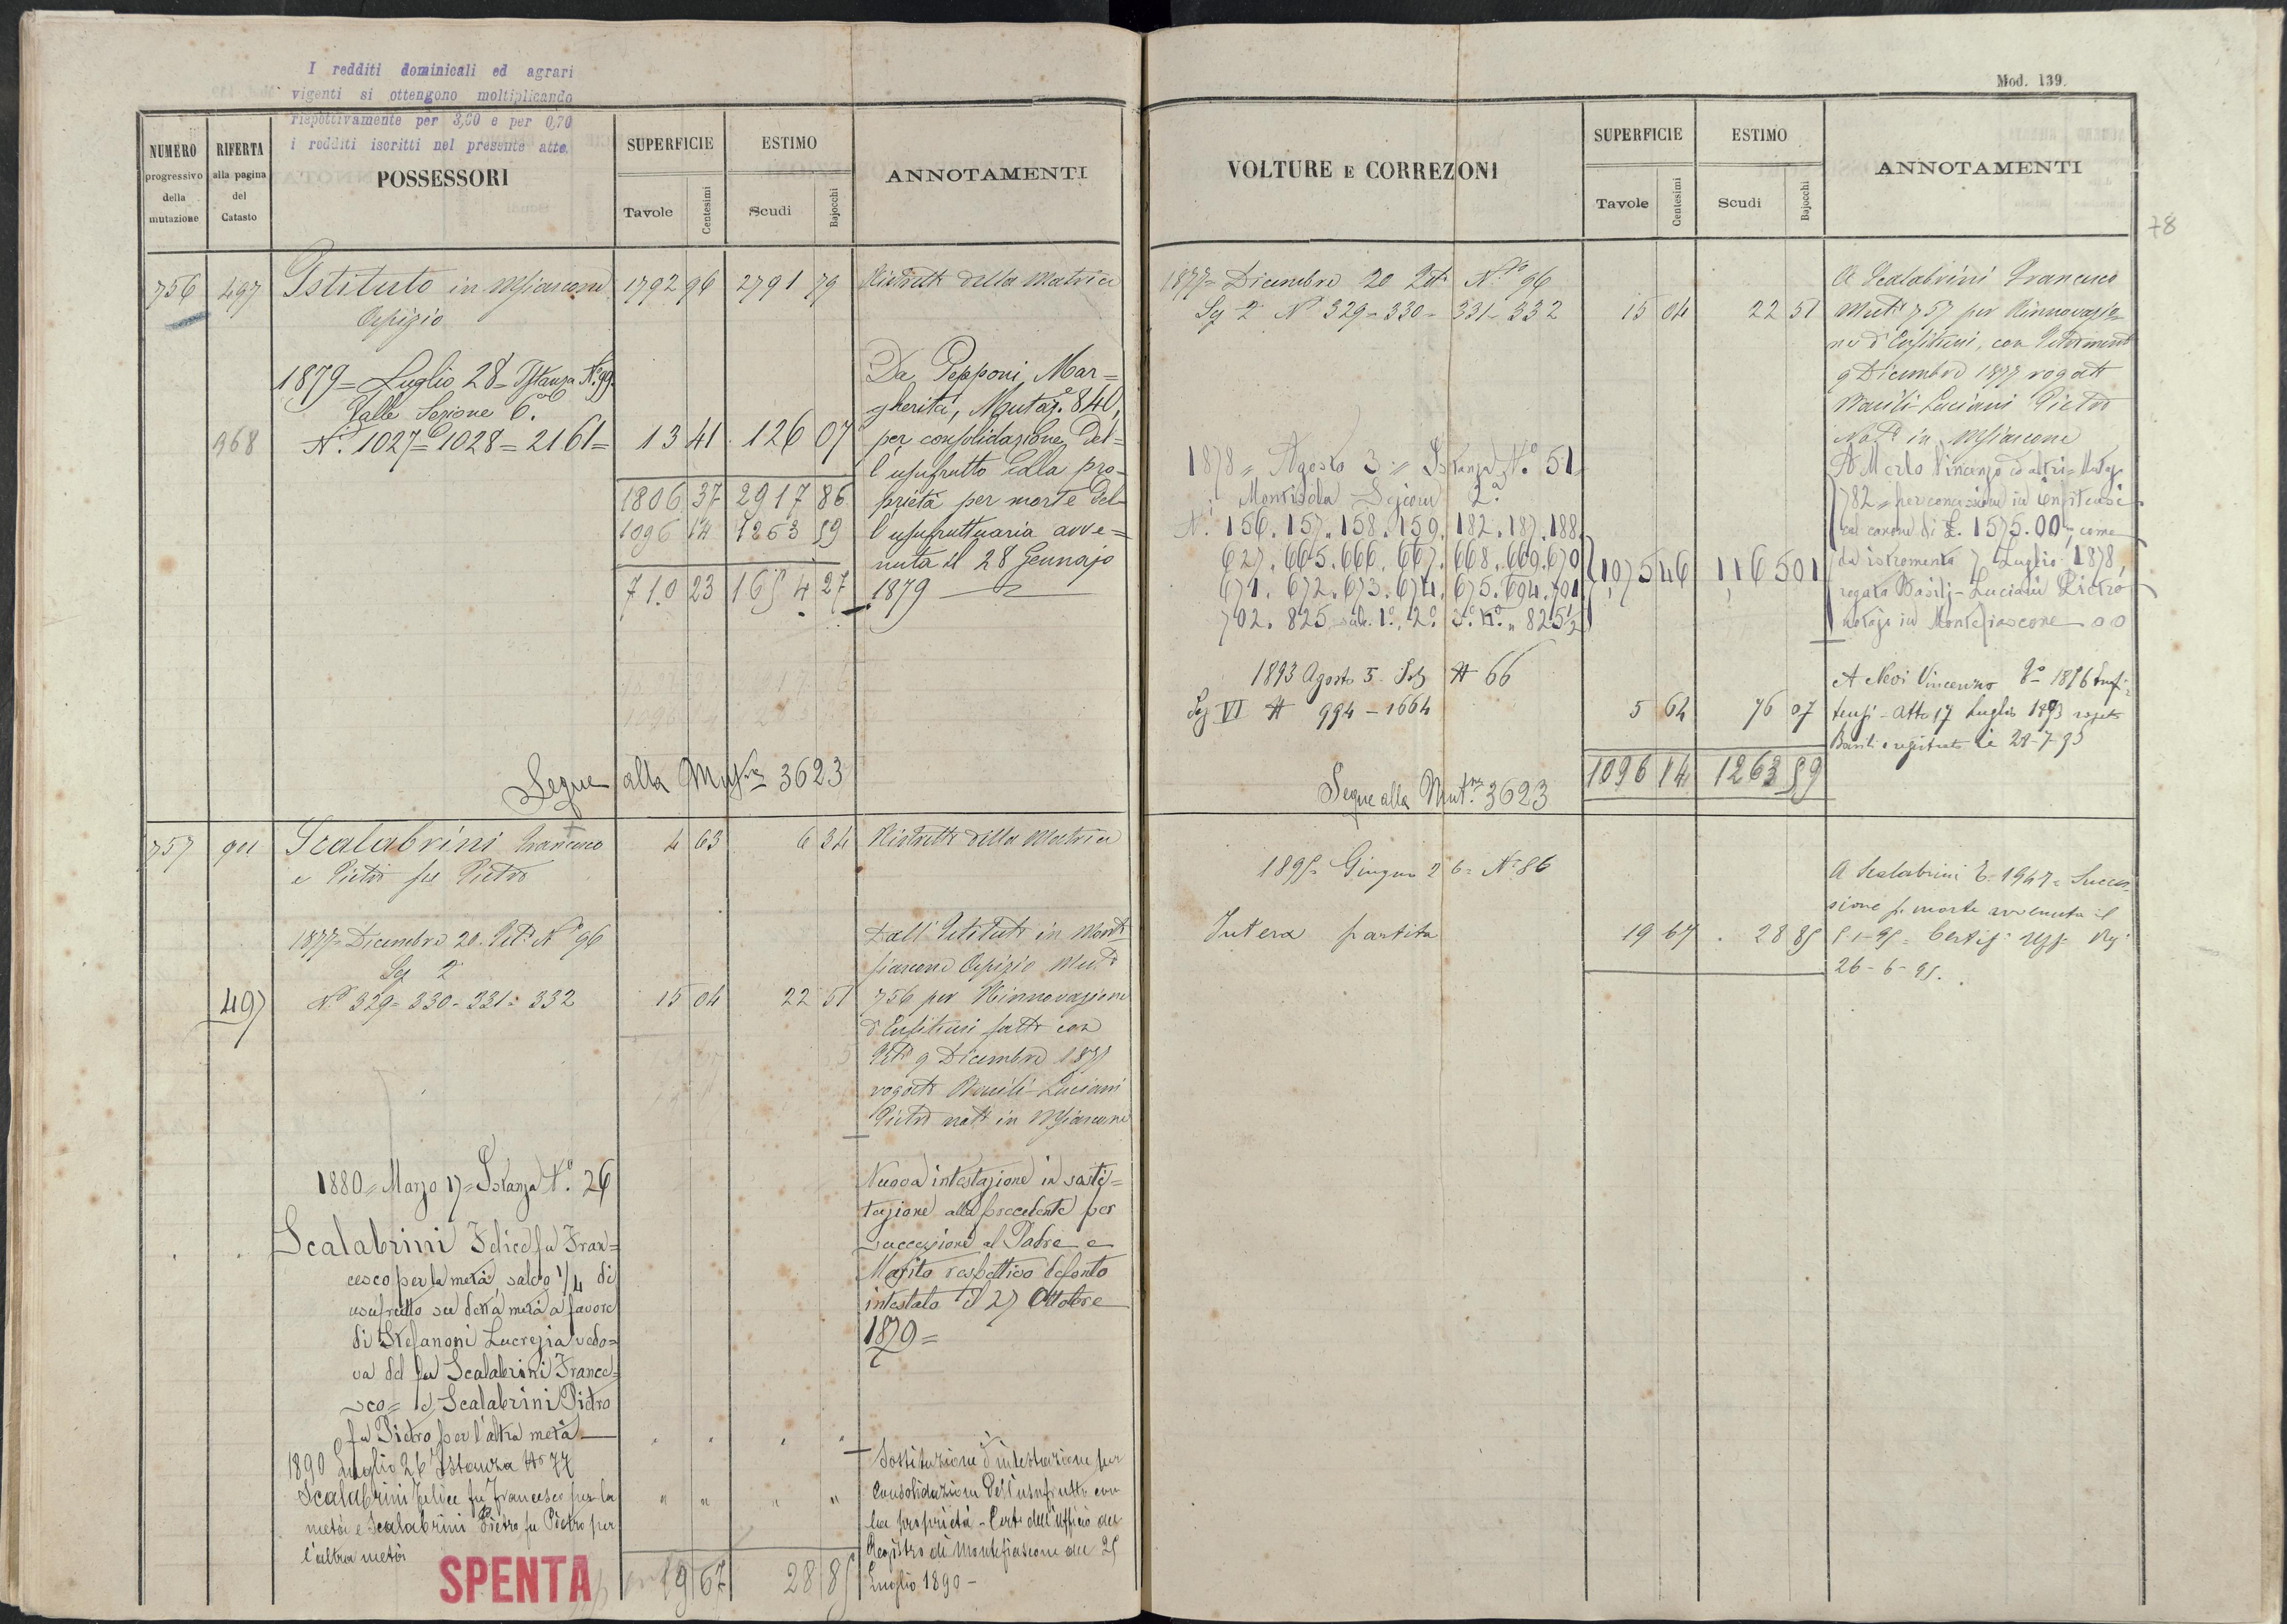 I redditi dominicali ed agrari
vigenti si ottengono moltiplicando
rispettivamente per 3,60 e per 0,70
i redditi iscritti nel presente atto.
NUMERO progressivo della mutazione
RIFERTA alla pagina del Catasto
POSSESSORI
SUPERFICIE
Tavole
Centesimi
ESTIMO
Scudi
Bajocchi
ANNOTAMENTI
756 497 Istituto in Mfiascone 1792 96 2791 79 Ristretto della Matrice
Ospizio
1879 = Luglio 28 = Istanza N.º 99.
Valle Sezione 6.ª
968 N.i 1027 = 1028 = 2161 = 13 41 126 07
Da Pepponi Mar=
gherita, Mutaz.e 840,
per consolidazione del=
l'usufrutto colla pro-
prietà per morte del=
l'usufruttuaria avve=
nuta il 28 Gennajo
1879
1806 37 2917 86
1096 14 1263 59
710 23 1654 27
Segue alla Mut.ne 3623
757 911 Scalabrini Francesco 4 63 6 34 Ristretto della Matrice
e Pietro fu Pietro
1877 = Dicembre 20. Ist.a N.º 96
Sez 2ª
497 N.i 329 = 330 = 331 = 332 15 04 22 51
Dall'Istituto in Monte
fiascone Ospizio Mut.e
756 per Rinnovazione
d'Enfiteusi fatta con
Ist.o 9 Dicembre 1877
rogato Basili-Luciani
Pietro not.o in Mfiascone
1880 = Marzo 17 = Istanza N.º 26
Scalabrini Felice fu Fran=
cesco per la metà, salvo 1/4 di
usufrutto su detta metà a favore
di Stefanoni Lucrezia vedo=
va del fu Scalabrini France=
sco = e Scalabrini Pietro
fu Pietro per l'altra metà
Nuova intestazione in sosti=
tuzione alla precedente per
successione al Padre e
Marito respettivo defonto
intestato il 27 Ottobre
1879 =
1890 Luglio 26 Istanza N° 77
Scalabrini Felice fu Francesco per la
metà e Scalabrini Pietro fu Pietro per
l'altra metà
Sostituzione d'intestazione per
consolidazione dell'usufrutto con
la proprietà - Cert. dell'Ufficio del
Registro di Montefiascone del 25
Luglio 1890 -
SPENTA
19 67 28 85
Mod. 139.
78
VOLTURE E CORREZONI
SUPERFICIE
Tavole
Centesimi
ESTIMO
Scudi
Bajocchi
ANNOTAMENTI
1877 = Dicembre 20 Ist.a N.º 96
Sez 2ª N.i 329 - 330 - 331 - 332 15 04 22 51
A Scalabrini Francesco
Mut.e 757 per Rinnovazio
ne d'Enfiteusi, con Istromento
9 Dicembre 1877 rogato
Basili-Luciani Pietro
Not.o in Mfiascone
1878 = Agosto 3 = Istanza N.º 51
Montisola Sezione 2.ª
N.i 156. 157. 158. 159. 182. 187. 188.
627. 665. 666. 667. 668. 669. 670
671. 672. 673. 674. 675. 694. 701
702. 825 sub. 1.º, 2.º 3.º 4.º = 825 1/2
1,075 46 1,165 01
A Merlo Vincenzo ed altri = Mutaz.
782 = per concessione in enfiteusi
col canone di L. 1575.00, come
da istromento 7 Luglio 1878,
rogato Basilj-Luciani Pietro
notajo in Montefiascone
1893 Agosto 5. Ist. N 66
Sez VI N 994 - 1664 5 64 76 07
A Nevi Vincenzo 1896 Enfi=
teusi - Atto 17 Luglio 1893 rogato
Basili e registrato li 28-7-93
1096 14 1263 59
Segue alla Mut.ne 3623
1895 = Giugno 26 = N. 86
Intera partita 19 67 28 85
A Scalabrini 1947 = Succes
sione p. morte avvenuta il
26-6-95.